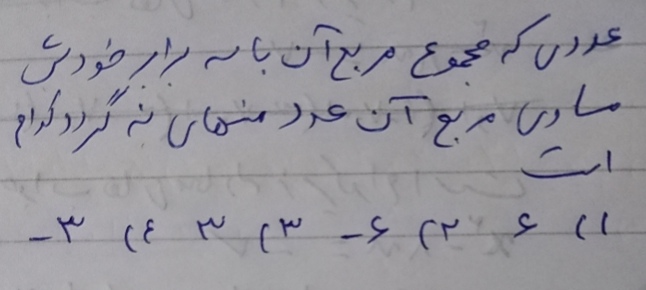 عددی که مجموع مربع آن با سه برابر خودش
مساوی مربع آن عدد منهای نه گردد کدام
است
۱) ۶ ۲) ۶- ۳) ۳ ۴) ۳-